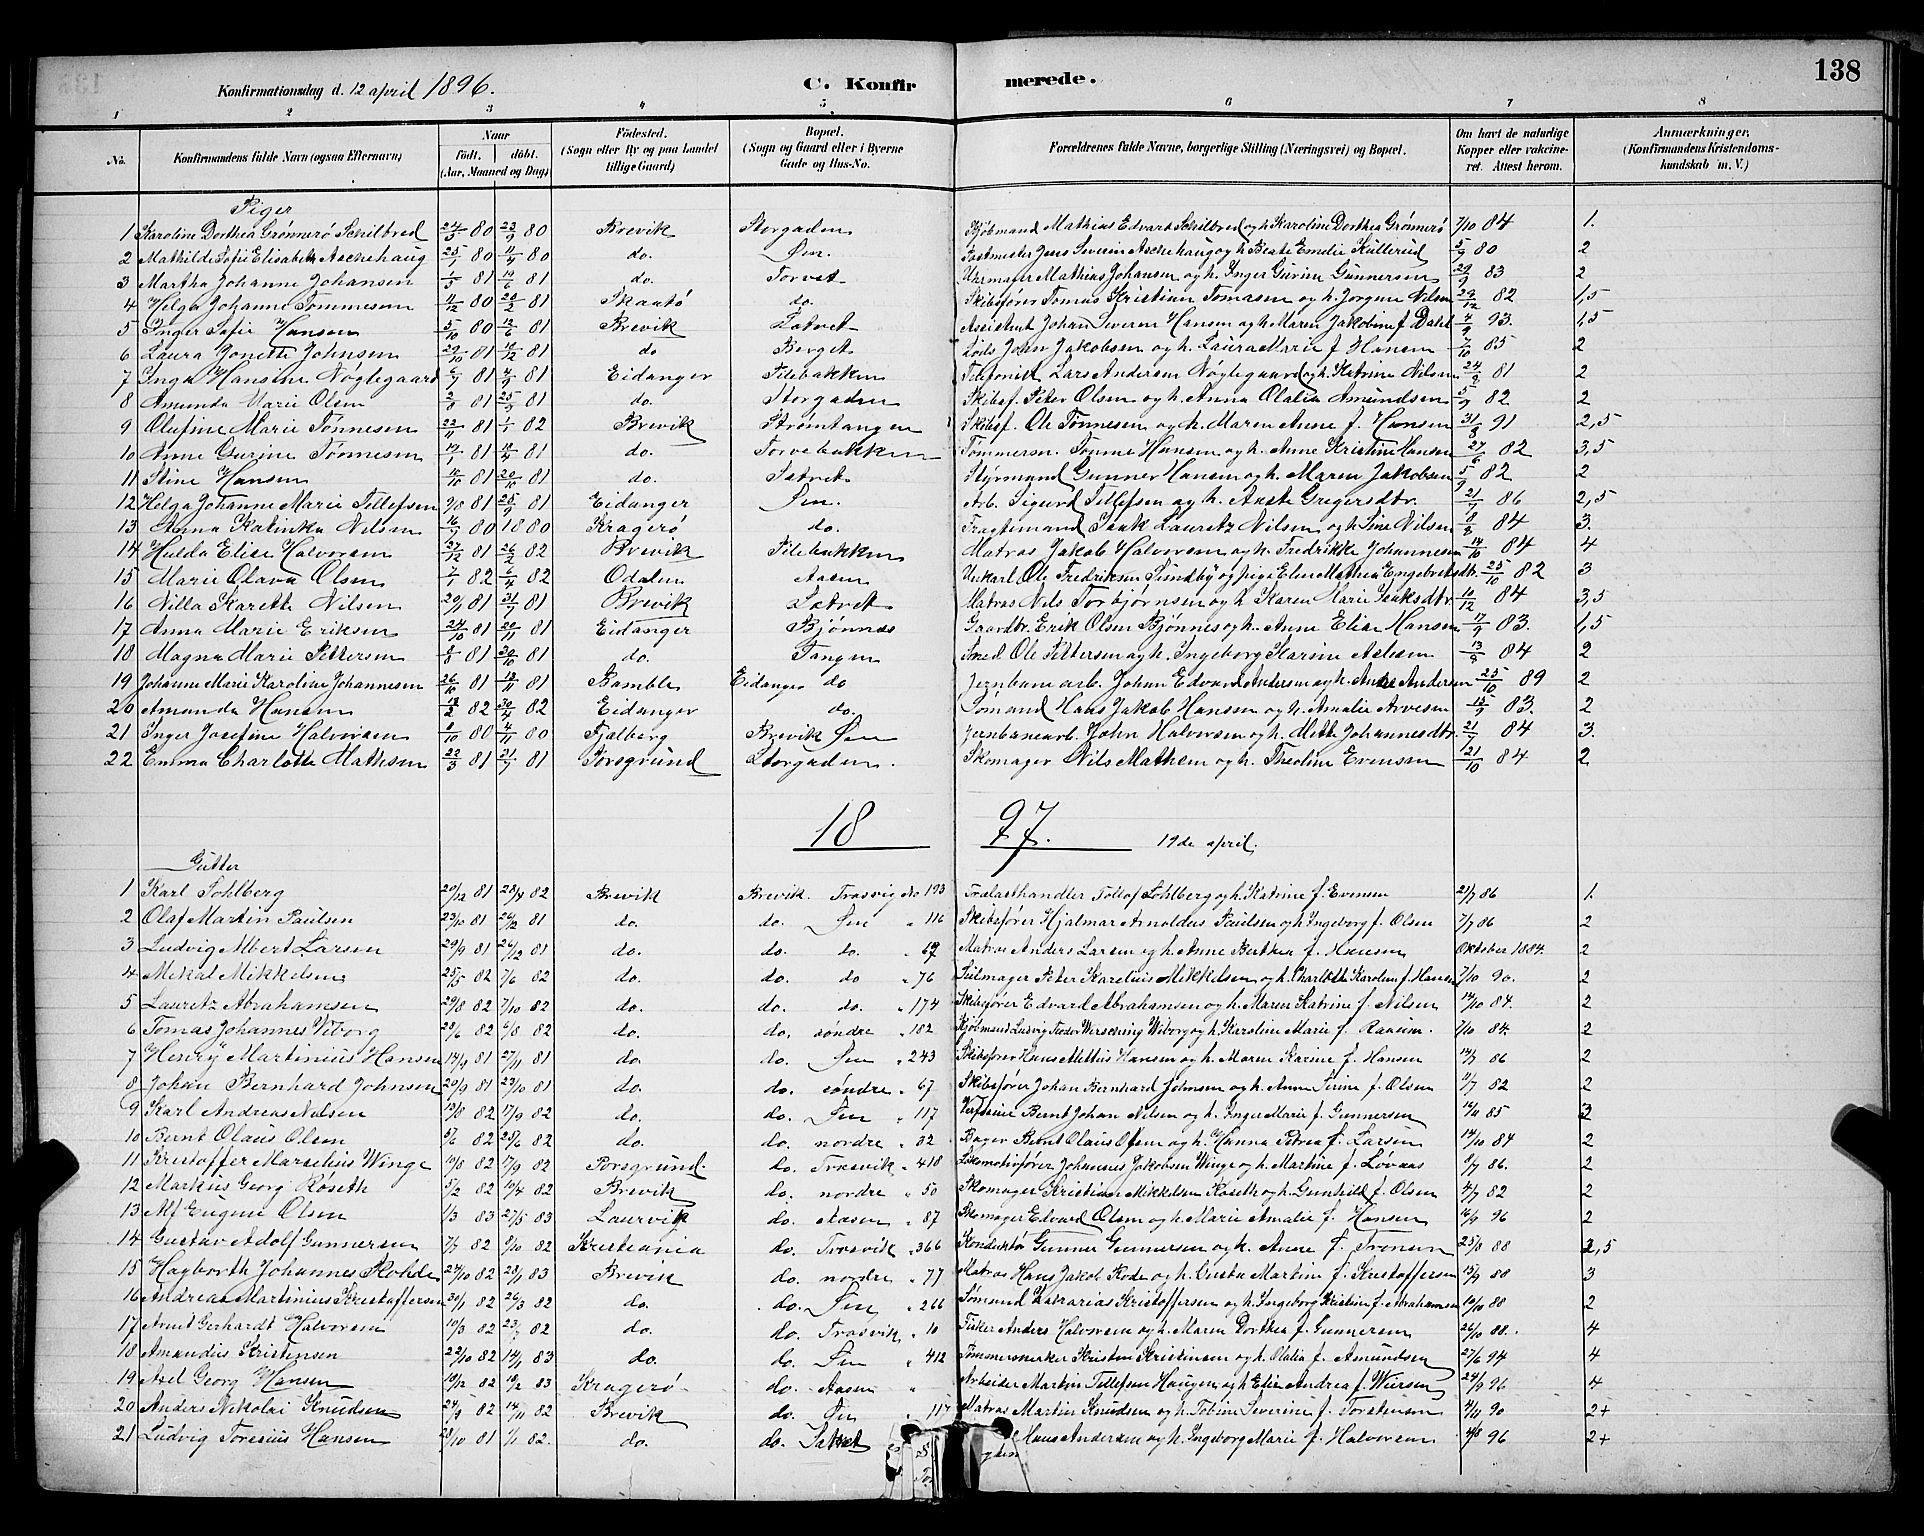 138
Konfirmationsdag d. 12 april 1896. C. Konfir merede.
1 2 3 4 5 6 7 8
No. Konfirmandens fulde Navn (ogsaa Efternavn) Naar født, døbt, (Aar, Maaned og Dag) Fødested. (Sogn eller By og paa Landet tillige Gaard) Bopæl. (Sogn og Gaard eller i Byerne Gade og Hus-No. Forældrenes fulde Navne, borgerlige Stilling (Næringsvei) og Bopæl. Om havt de naturlige Kopper eller vakcineret. Attest herom. Anmærkninger. (Konfirmandens Kristendomskundskab m. V.)
Piger
1 Karoline Dorthea Grønnerö Schilbred 24/5 80 23/9 80 Brevik Storgaden Kjöbmand Mathias Edvard Schilbred og h. Karoline Dorthea Grønnerö 7/10 84 1.
2 Mathilde Sofie Elisabeth Aschehaug 25/1 80 11/4 80 do. Øen. Postmester Jens Severin Aschehaug og h. Beate Emilie Kullerud 5/9 80 2
3 Martha Johanne Johansen 1/5 81 19/6 81 do. Torvet Uhrmager Mathias Johansen og h. Inger Gurine Gunnersen 29/9 83 2
4 Helga Johanne Tommesen 11/12 80 20/2 81 Skaatö do. Skibsfører Tomas Kristian Tomasen og h. Jorgine Nilsen 29/12 82 1,5
5 Inger Sofie Hansen 5/10 80 12/6 81 Brevik Sætret Assistent Johan Severin Hansen og h. Maren Jakobine f. Dahl 4/9 93. 1,5
6 Laura Jonette Johnsen 29/10 81 18/12 81 do Berget Lods John Jakobsen og h. Laura Marie f. Hansen 7/10 85 2
7 Inga Hansine Nøglegaard 6/7 81 4/9 81 Eidanger Pilebakken Telefonist Lars Andersen Nøglegaard og h. Katrine Nilsen 24/9 81 2
8 Amunda Marie Olsen 2/8 81 25/9 81 do. Storgaden Skibsf. Peter Olsen og h. Anna Olalia Amundsen 5/9 82 2
9 Olafine Marie Tönnesen 22/11 81 1/1 82 Brevik Strømtangen Skibsf. Ole Tönnesen og h. Maren Anne f. Hansen 31/8 91 2,5
10 Anne Gurine Tönnesen 81 81 do. Torvebakken Tömmersn. Tönnes Hansen og h. Anne Kristine Hansen 27/6 82 3,5
11 Stine Hansen 81 20/10 81 do. Sætret Styrmand Gunner Hansen og h. Maren Jakobsen 5/9 82 2
12 Helga Johanne Marie Tellefsen 9/8 81 25/9 81 Eidanger Øen. Arb. Sigurd Tellefsen og h. Aaste Gregersdtr. 21/7 86 2,5
13 Anna Katinka Nilsen 16/7 80 18 80 Kragerö do. Fragtemand Isak Lauretz Nilsen og h. Sine Nilsen 8/9 84 3.
14 Hulda Elise Halvorsen 27/12 81 26/2 82 Brevik Pilebakken Matros Jakob Halvorsen og h. Fredrikke Johannesen 14/10 84 4
15 Marie Olava Olsen 7/1 82 6/4 82 Odalen Aasen Unkarl Ole Fredriksen Sundby og pige Eline Mathea Engebretsdtr. 25/10 82 3
16 Nilla Karethe Nilsen 20/1 81 31/7 81 Brevik Sætret Matros Nils Torbjörnsen og h. Karen Marie Isaksdtr. 10/12 84 3,5
17 Anna Marie Eriksen 24/10 81 20/11 81 Eidanger Bjönnes Gaardbr. Erik Olsen Bjönnes og h. Anne Elise Hansen 17/9 83. 1,5
18 Magna Marie Pettersen 8/8 81 30/10 81 do. Tangen Smed Ole Pettersen og h. Ingeborg Karine Aslesen 13/9 84 2
19 Johanne Marie Karoline Johannesen 26/10 81 18/11 81 Bamble Eidanger do Jernbanearb. Johan Edvard Andersen og h. Anne Andersen 25/10 89 2
20 Amanda Hansen 19/2 82 30/4 82 Eidanger do. Sømand Hans Jakob Hanssen og h. Amalie Arvesen 15/9 83. 2
21 Inger Josefine Halvorsen 8/10 80 4/11 80 Fjælberg Brevik Øen Jernbanearb. John Halvorsen og h. Mette Johannesdtr. 21/7 84 3.
22 Emma Charlotte Mathsen 22/3 81 31/7 81 Porsgrund Storgaden. Skomager Nils Mathsen og h. Theoline Evensen 21/10 84 2
18 97. 19de april.
Gutter
1 Karl Sohlberg 20/12 81 28/4 82 Brevik Brevik. Trosvig No 193 Trælasthandler Tollof Sohlberg og h. Katrine f. Evensen 21/7 86 1.
2 Olaf Martin Paulsen 23/10 81 26/12 81 do. do. Øen " 116 Skibsfører Hjalmar Arnoldus Paulsen og h. Ingeborg f. Olsen 7/7 86 2
3 Ludvig Albert Larsen 29/9 81 26/12 81 do. do. do. " 69 Matros Anders Larsen og h. Anne Berthea f. Hansen Oktober 1884. 2
4 Mikal Mikkelsen 25/5 82 7/6 82 do. do. do " 76 Seilmager Peter Karelius Mikkelsen og h. Charlotte Karoline f. Hansen 7/10 90. 2
5 Lauretz Abrahamsen 29/8 82 7/10 82 do. do. do. " 174 Skibsfører Edvard Abrahamsen og h. Maren Katrine f. Nilsen 14/10 84. 2
6 Tomas Johannes Wiborg 28/6 82 6/8 82 do. do. söndre " 182 Kjöbmand Ludvig Fedor Wersching Wiborg og h. Karoline Marie f. Raaum. 7/10 84. 2
7 Henry Martinius Hansen 14/9 81 27/11 81 do. do. Øen " 243 Skibsfører Hans Mettius Hansen og h. Maren Karine f. Hansen 14/7 86 2
8 Johan Bernhard Johnsen 20/9 81 23/10 81 do. do. söndre " 67 Skibsfører Johan Bernhard Johnsen og h. Anne Sirine f. Olsen 11/7 82 2
9 Karl Andreas Nilsen 19/8 82 17/9 82 do. do. Øen " 117 Bernt Johan Nilsen og h. Inger Marie f. Gunnersen 16/11 85 2
10 Bernt Olaus Olsen 5/6 82 25/6 82 do. do. nordre " 32 Bager Bernt Olaus Olsen og h. Hanna Petrea f. Larsen 14/10 84 2
11 Kristoffer Marselius Winge 19/8 82 17/9 82 Porsgrund. do. Trosvik " 418 Lokomotivfører Johannes Jakobsen Winge og h. Martine f. Løvaas 8/7 86. 2
12 Markus Georg Röseth 5/2 82 10/4 82 Brevik do. nordre " 50 Skomager Kristian Mikkelsen Röseth og h. Gunhild f. Olsen 4/7 82 2
13 Alf Eugene Olsen 1/3 83 27/5 83 Laurvik do. Aasen " 87 Skomager Edvard Olsen og h. Marie Amalie f. Hansen 16/9 96 2
14 Gustav Adolf Gunnersen 7/7 82 8/10 82 Kristiania do. Trosvik " 366 Konduktör Gunner Gunnersen og h. Anne f. Tronsen 25/8 88 2,5
15 Hagbarth Johannes Rohde 24/10 82 28/1 83 Brevik do. nordre " 77 Matros Hans Jakob Rode og h. Gusta Martine f. Kristoffersen 13/9 88 3
16 Andreas Martinius Kristoffersen 30/1 82 26/3 82 do. do. Øen " 266 Sømand Zakarias Kristoffersen og h. Ingeborg Kristine f. Abrahamsen 10/10 88 2
17 Arnt Gerhardt Halvorsen 10/3 82 23/7 82 do. do. Trosvik " 10 Fisker Anders Halvorsen og h. Maren Dorthea f. Gunnersen 26/10 88. 4
18 Amandus Kristensen 22/10 82 14/1 83 do. do. Øen " 412 Tömmermerker Kristen Kristensen og h. Olalia f. Amundsen 27/6 94 4
19 Axel Georg Hansen 19/12 82 18/2 83 Kragerö do. Aasen " Arbeider Martin Tellefsen Haugen og h. Elise Andrea f. Wiersen 24/9 96 4
20 Anders Nikolai Knudsen 24/9 82 14/11 82 Brevik do. Øen " 117 Matros Martin Knudsen og h. Tobine Severine f. Torstensen 4/11 90 2+
21 Ludvig Toresius Hansen 23/10 81 1/1 82. do. do. Sætret Hans Andersen og h. Ingeborg Marie f. Halvorsen 4/8 96 2+